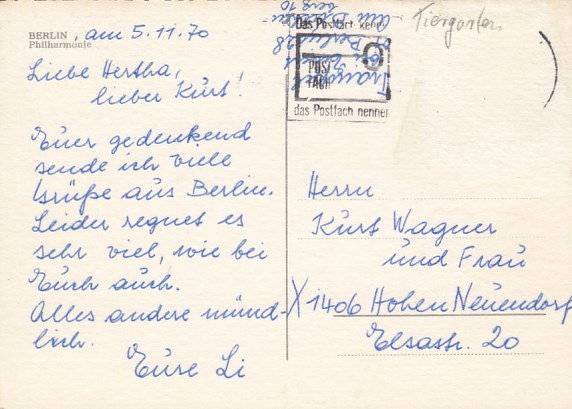 BERLIN, am 5.11.70
Philharmonie
Liebe Hertha,
lieber Kurt!
Eurer gedenkend
sende ich viele
Grüße aus Berlin.
Leider regnet es
sehr viel, wie bei
Euch auch.
Alles andere münd-
lich.
Eure Li
Tiergarten
Das Postfach
POST
FACH
das Postfach nennen
Herrn
Kurt Wagner
und Frau
X 1406 Hohen Neuendorf
Elsastr. 20